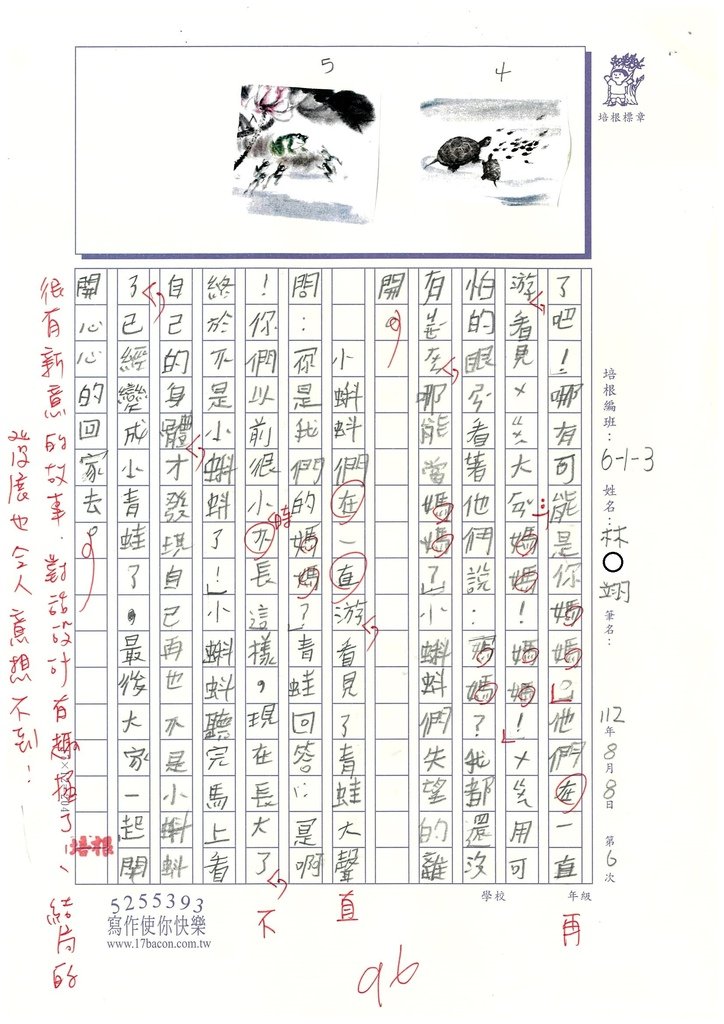 5
4
培根標章
了吧！哪有可能是你媽媽。」他們在一直
游看見大媽媽！媽媽！」用可
怕的眼看著他們說：媽媽？我都還沒
有在哪能當媽媽？」小蝌蚪們失望的離
開。
小蝌蚪們在一直游看見了青蛙大聲
問：你是我們的媽媽？」青蛙回答：是啊
！你們以前很小不長這樣，現在長大了
終於不是小蝌蚪了！」小蝌蚪聽完馬上看
自己的身體才發現自己再也不是小蝌蚪
了已經變成小青蛙了，最後大家一起開
開心心的回家去。
時
再
直
不
很有新意的故事，對話設計有趣極了！、結局的
發展也令人意想不到！
96
培根
培根編班：6-1-3
姓名：林 翊
筆名：
112年8月8日 第6次
學校 年級
5255393
寫作使你快樂
www.17bacon.com.tw